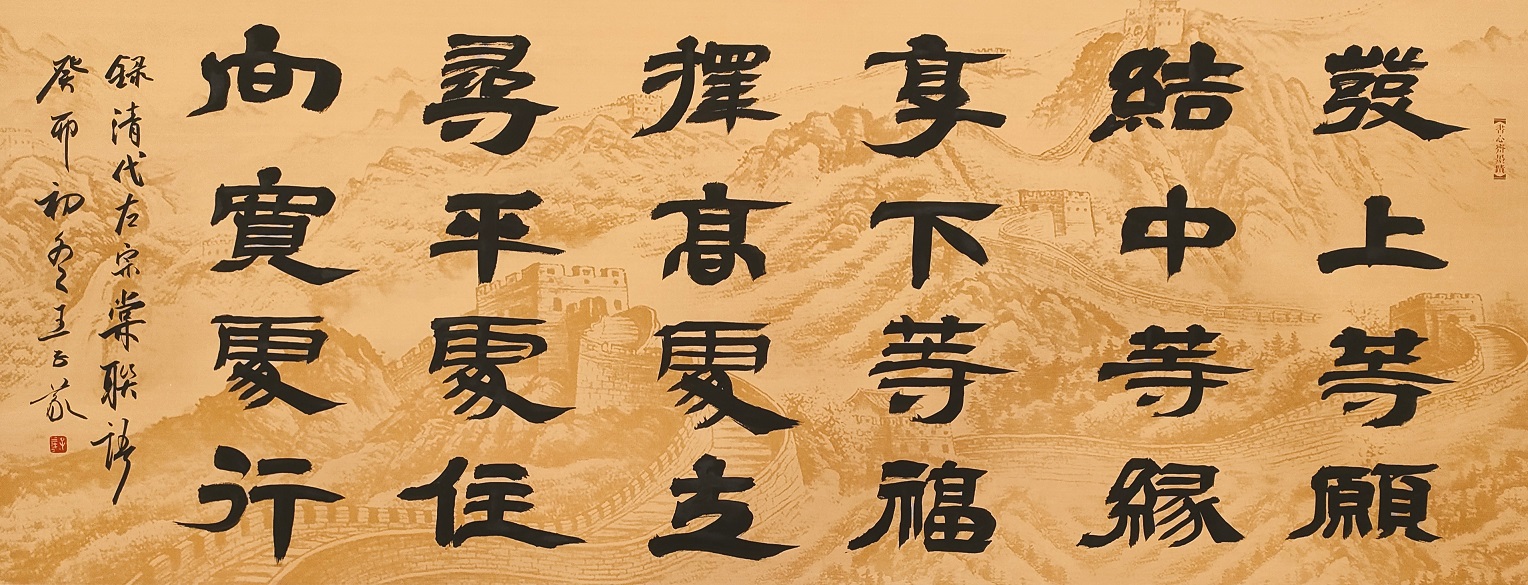 【書心齋墨蹟】
發上等願
結中等緣
享下等福
擇高處立
尋平處住
向寬處行
錄清代左宗棠聯語
癸卯初冬王